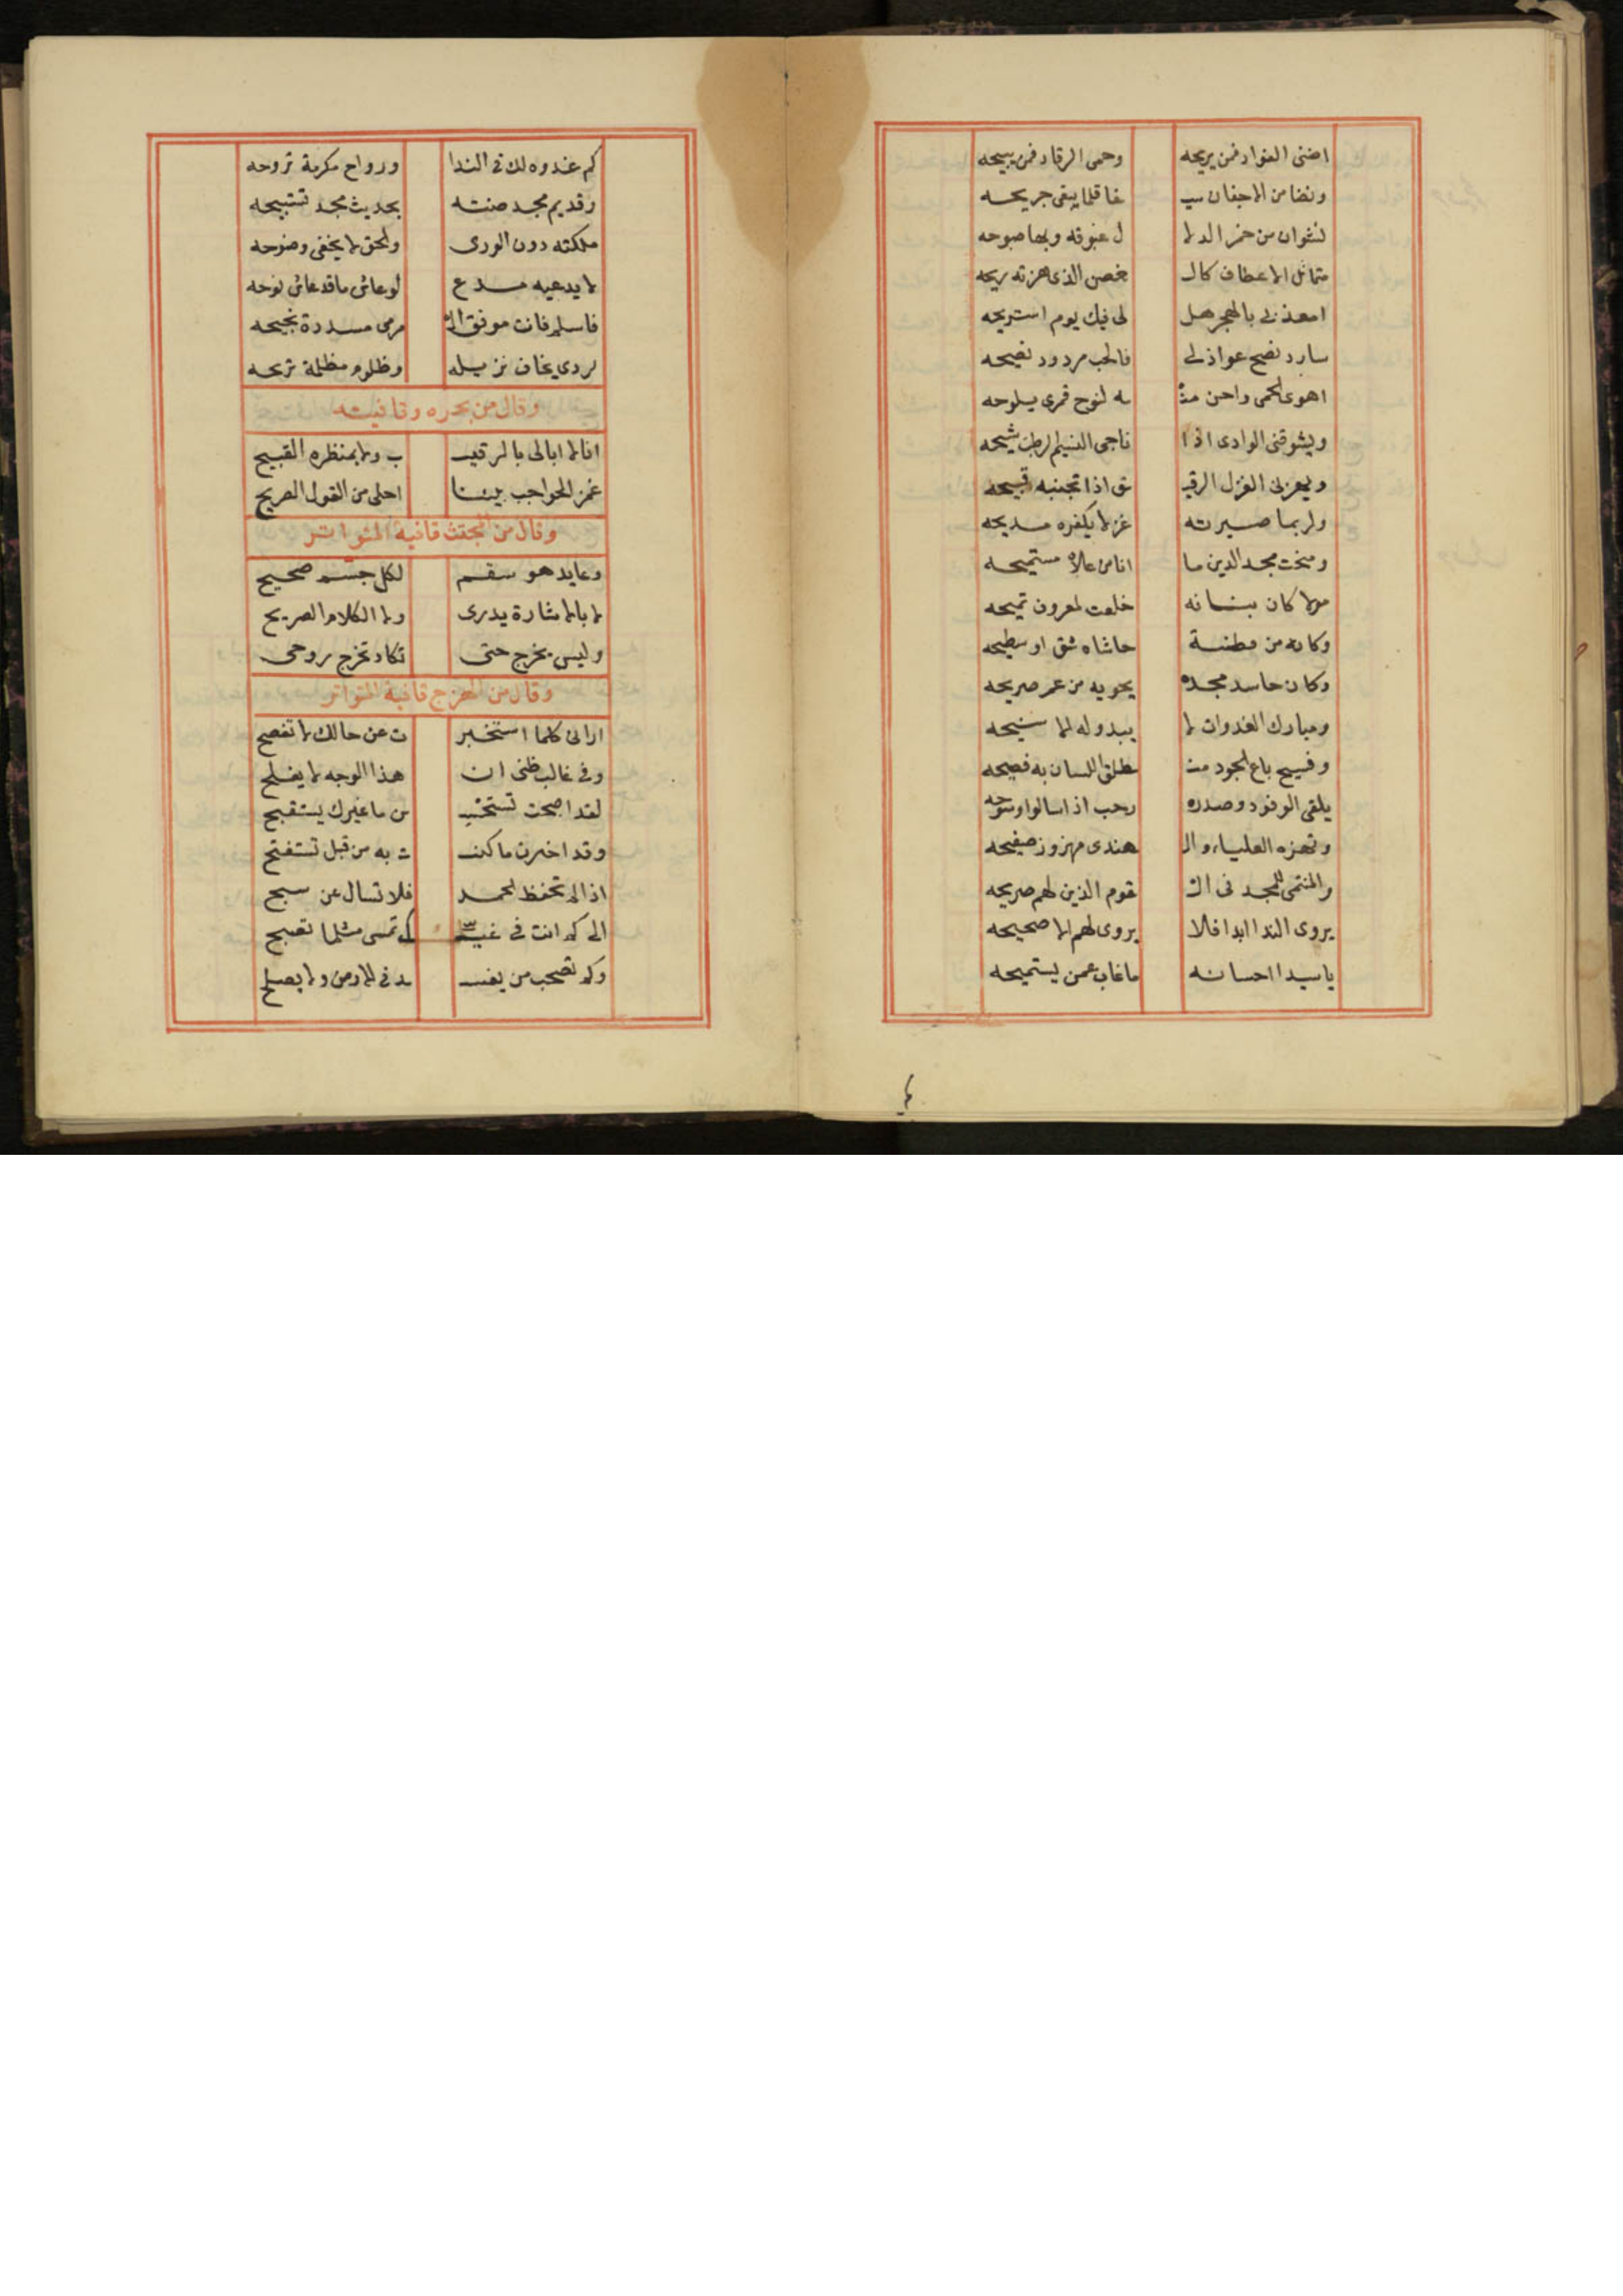 اضنى الفواد فمن يريحه وحمى الرقاد فمن يبيحه
ونضا من الاجفان سيـ ـفا قلما يبقى جريحه
نشوان من خمر الدلا ل غبوقه وبها صبوحه
متمائل الاعطاف كالـ ـغصن الذى هزته ريحه
امعذبى بالهجر هل لى فيك يوم استريحه
سارد نصح عواذلى فالحب مردود نصيحه
اهوى الحمى واحن منـ ـه لنوح قمرى يلوحه
ويشوقنى الوادى اذا ناجى النسيم الرطب شيحه
ويعزنى الغزل الرقيـ ـق اذا تجنبه قبيحه
ولربما صيرته غزلا يكفره مديحه
ومنحت مجد الدين ما انا من علاه مستميحه
مولا كان بنانه خلعت لمعرون تميحه
وكانه من فطنة حاشاه شق او سطيحه
وكان حاسد مجده يحويه من عمر صريحه
ومبارك الغدوات لا يبدو له الا سنيحه
وفسيح باع الجود منـ ـطلق اللسان به فصيحه
يلقى الوفود وصدره رحب اذا سالوا وسوحه
وتهزه العلياء والـ ـهندى مهزوز صفيحه
والمنتمى للمجد فى الـ ـقوم الذين لهم صريحه
يروى الندا ابدا فلا يروى لهم الا صحيحه
يا سيدا احسانه ما غاب عمن يستميحه
كم غدوه لك فى الندا ورواح مكرمة تروحه
وقديم مجد صنته بحديث مجد تستبيحه
ملكته دون الورى والحق لا يخفى وضوحه
لا يدعيه مدع لو عاش ما قد عاش نوحه
فاسلم فانت موفق الـ ـمرمى مسددة نجيحه
لردى يخاف نزيله وظلوم مظلمة تزيحه
وقال من بحره وقافيته
انا لا ابالى بالرقيـ ـب ولا بمنظره القبيح
غمز الحواجب بيننا احلى من القول الصريح
وقال من المجتث قافية المتواتر
وعايد هو سقم لكل جسم صحيح
لا بالاشارة يدرى ولا الكلام الصريح
وليس يخرج حتى تكاد تخرج روحى
وقال من الهزج قافية المتواتر
ارانى كلما استخبر ت عن حالك لا تفصح
وفى غالب ظنى ان هذا الوجه لا يفلح
لقد اصبحت تستحسـ ـن ما غيرك يستقبح
وقد اخبرت ما كنـ ـت به من قبل تستفتح
اذا لم تحفظ الحمد فلا تسال عن سبح
الى كم انت فى غيـ ـك تمسى مثلما تصبح
وكم تصحب من يفسـ ـد فى الارض ولا يصلح